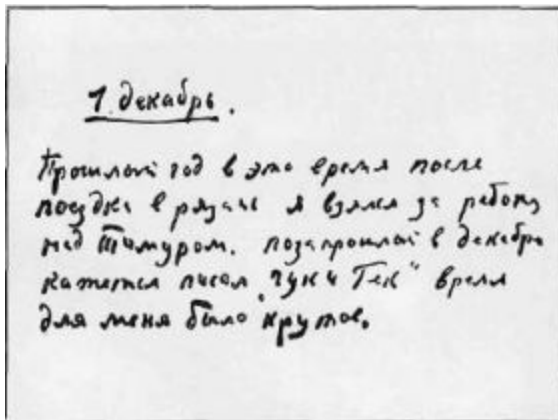 1. декабрь.
Прошлый год в это время после
поездки в рязань я взялся за работу
над Тимуром. позапрошлый в декабре
кажется писал „Чук и Гек“ время
для меня было крутое.